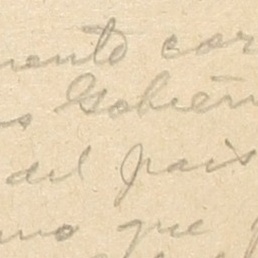 mento cor
s Gobiern
del pais
mo que